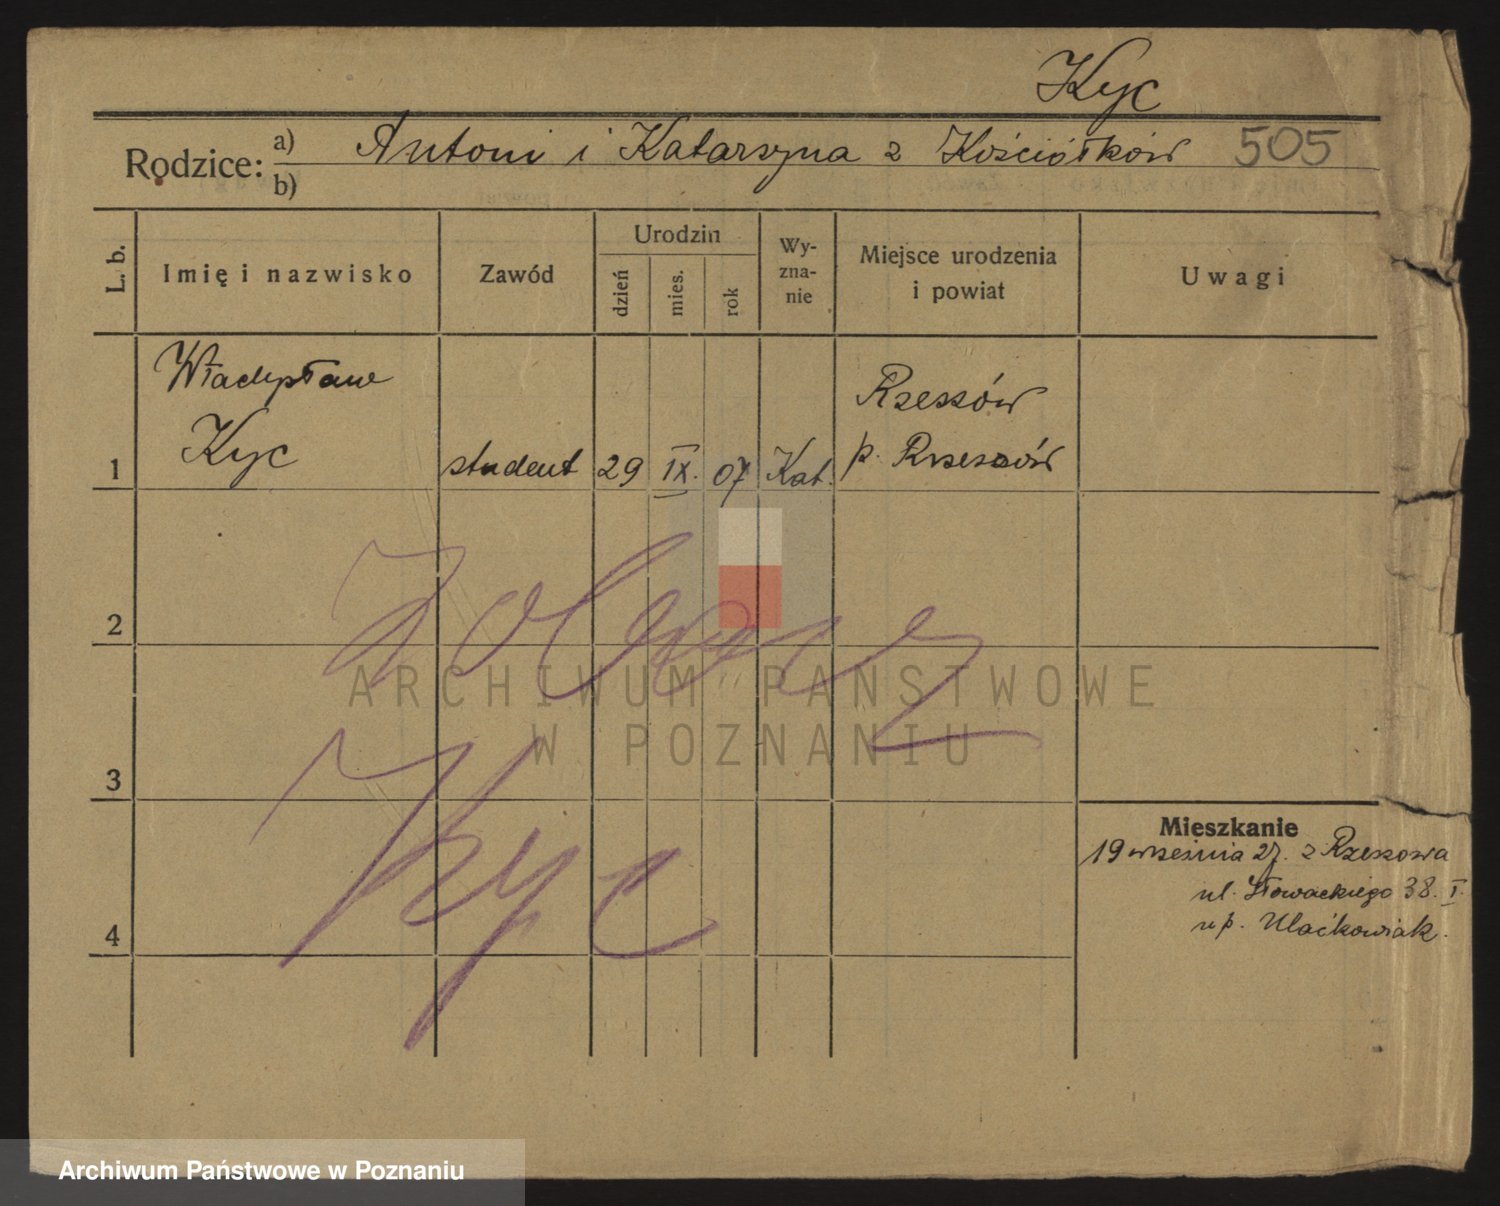 Kyc
Rodzice: a) Antoni i Katarzyna z Kościółków 505
b)
L. b.
Imię i nazwisko
Zawód
Urodzin
dzień
mies.
rok
Wy-
zna-
nie
Miejsce urodzenia
i powiat
Uwagi
Władysław
Kyc
1
student
29
IX.
07
Kat.
Rzeszów
p. Rzeszów
2
3
4
Kyc
Mieszkanie
19 września 27. z Rzeszowa
ul. Słowackiego 38. I.
u p. Maćkowiak.
ARCHIWUM PAŃSTWOWE
W POZNANIU
Archiwum Państwowe w Poznaniu